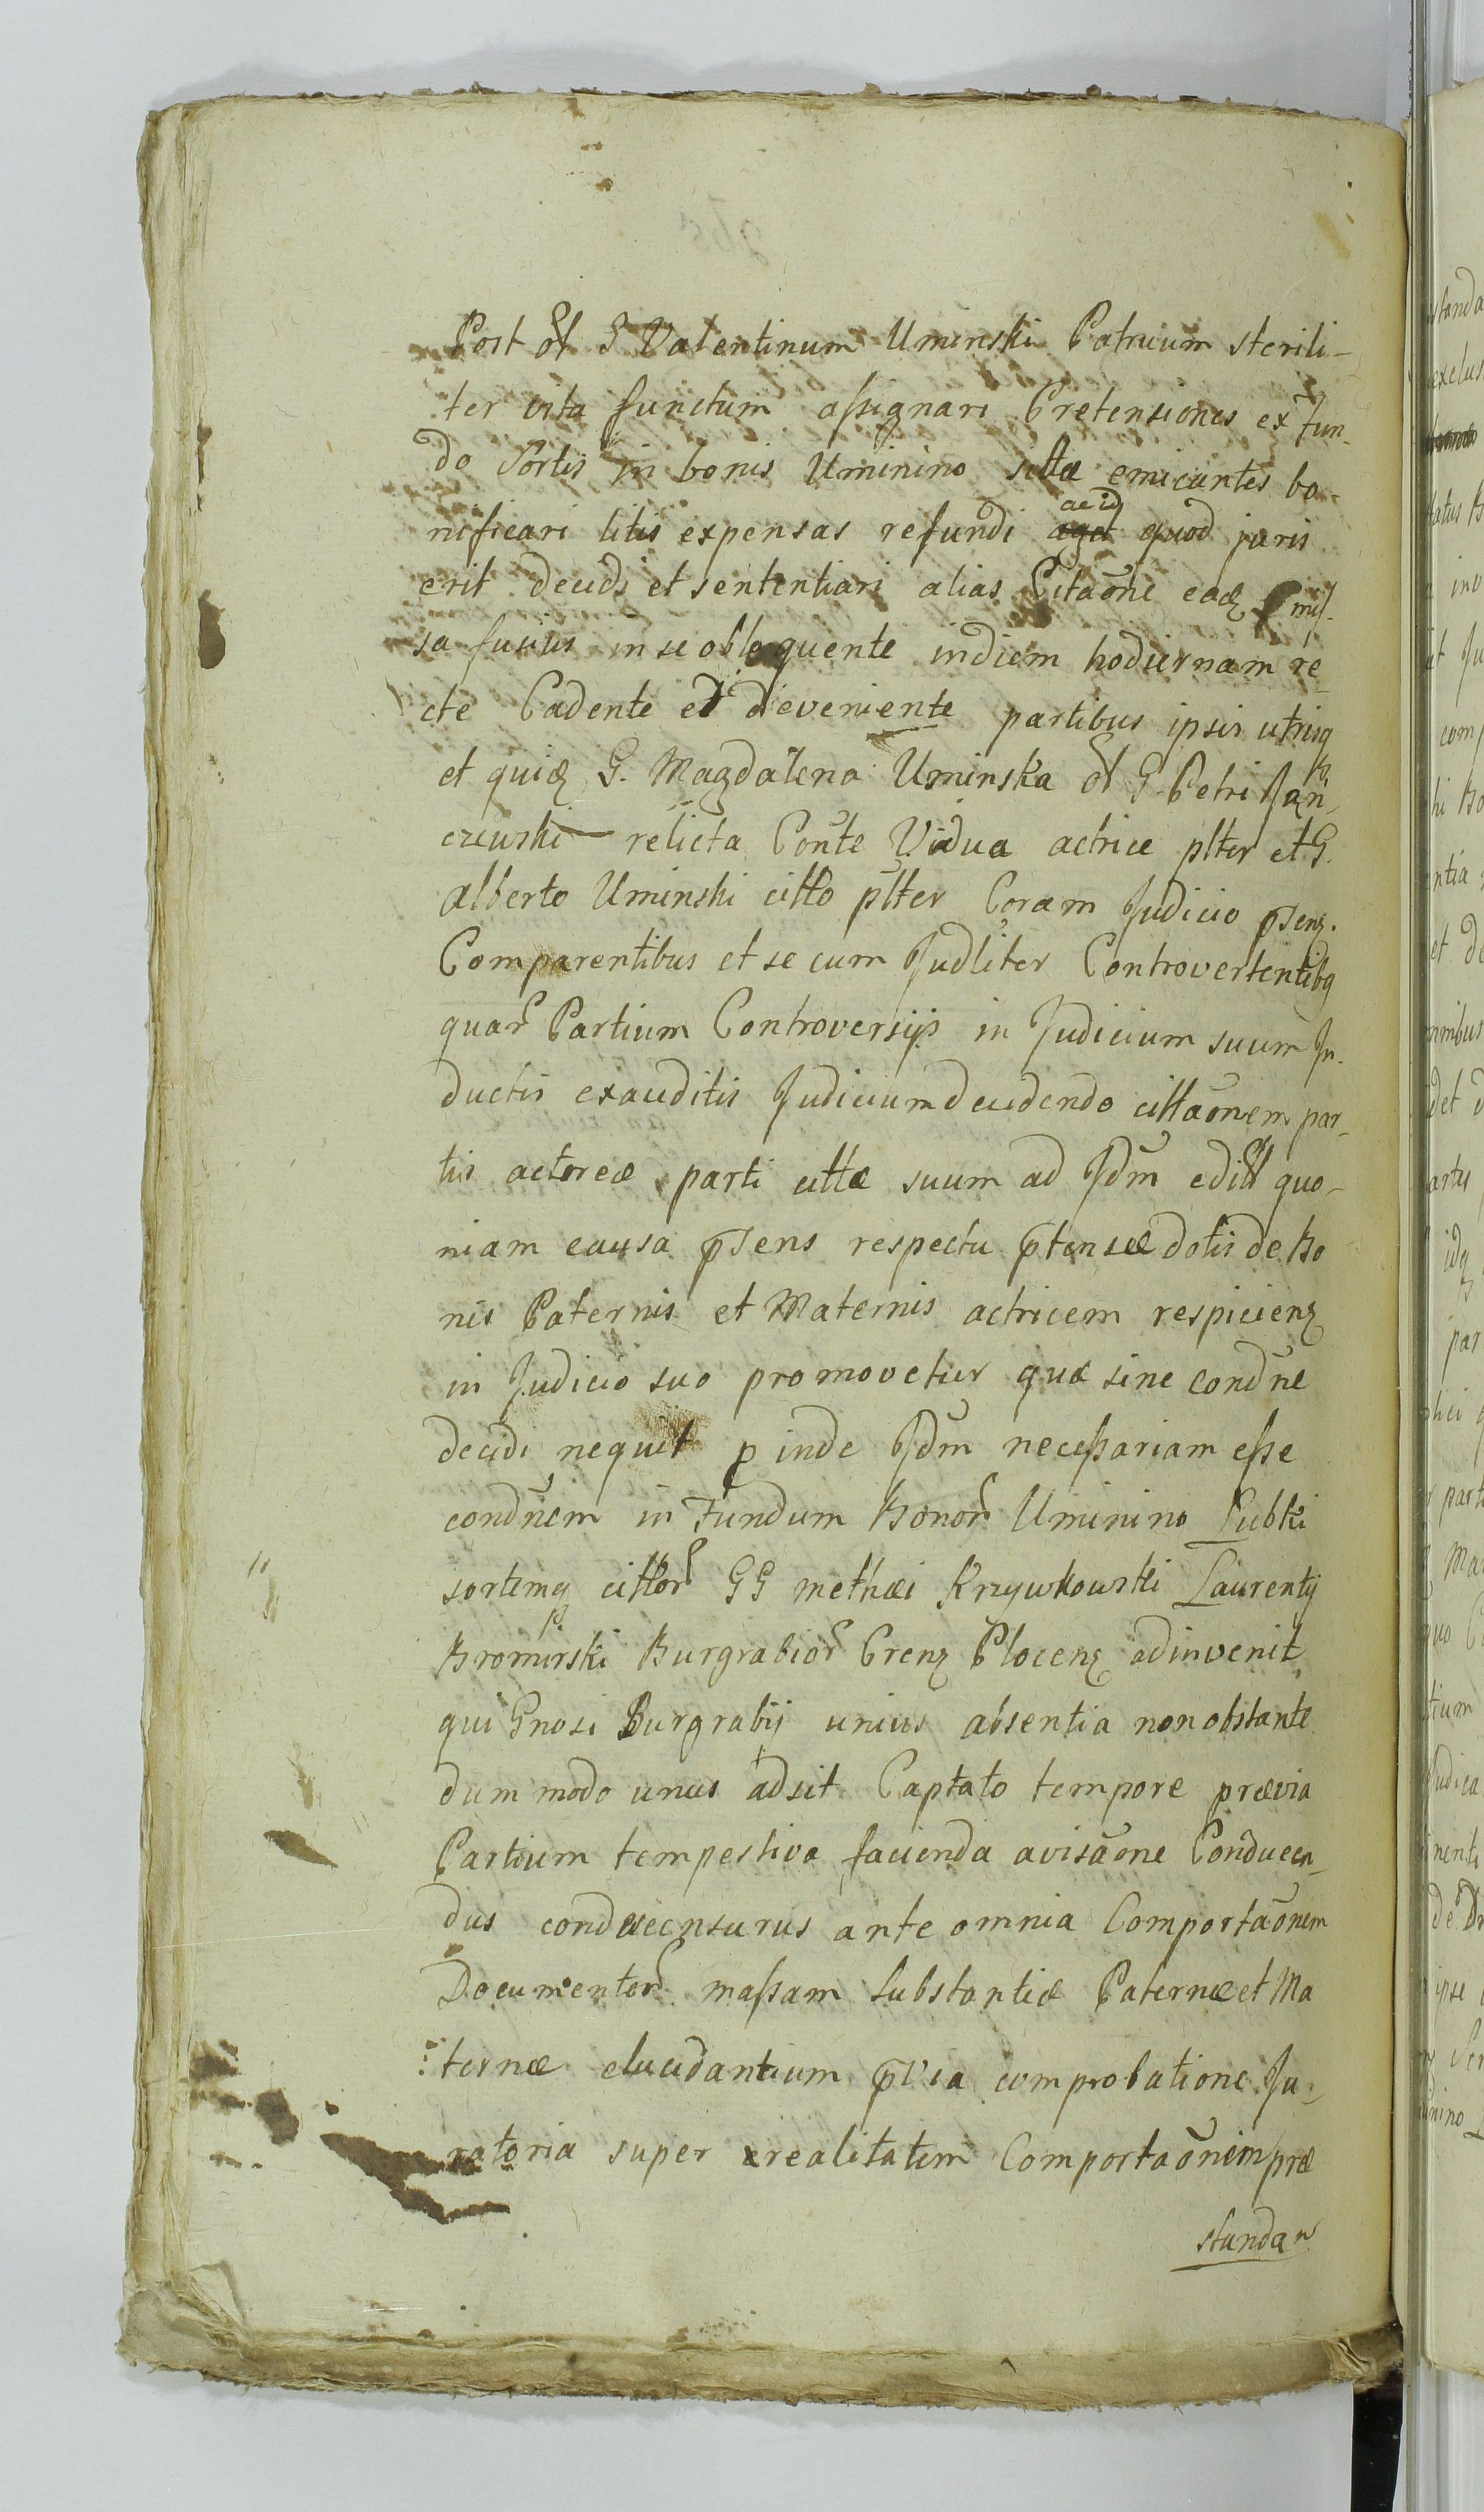 Post ol G Valentinum Uminski Patruum sterili-
ter vita functum assignari Pretensiones ex fun-
do Sortis in bonis Uminino sittæ emicantes bo-
nificari litis expensas refundi ac id quod juris
erit decidi et sententiari alias Citaõne eadȝ
sa fusius in se obloquente in diem hodiernam re-
cte Cadente et d'eveniente partibus ipsis utrisq
et quidȝ G. Magdalena Uminska ol G. Petri
relicta Conte Vidua actrice plter et G.
Alberto Uminski citto plter Coram Judicio pſenȝ.
Comparentibus et se cum Judliter Controvertentibq
quar Partium Controversijs in Judicium suum In-
ductis exauditis Judicium decidendo cittaõnem par-
tis actoreæ parti cittæ suum ad Jdm edill quo-
niam causa pſens respectu ptensæ dotis de Bo
nis Paternis et Maternis actricem respicienȝ
in Judicio suo promovetur quæ sine condne
decidi nequit p inde Jdm necessariam esse
condnem in Fundum Bonor Uminino Lubki
sortemq cittor GG Mathæi Krzywkowski Laurentij
Bromirski Burgrabior Crenȝ Plocenȝ adinvenit
qui Gnosi Burgrabij unius absentia non obstante
dum modo unus adsit Captato tempore prævia
Partium tempestiva facienda avisaõne Conducen-
dus condæcensurus ante omnia Comportaõnem
Documentor massam Substantiæ Paternæ et Ma
ternæ elucidantium pvia comprobatione Ju-
ratoria super realitatem Comportaõnem præ
standan